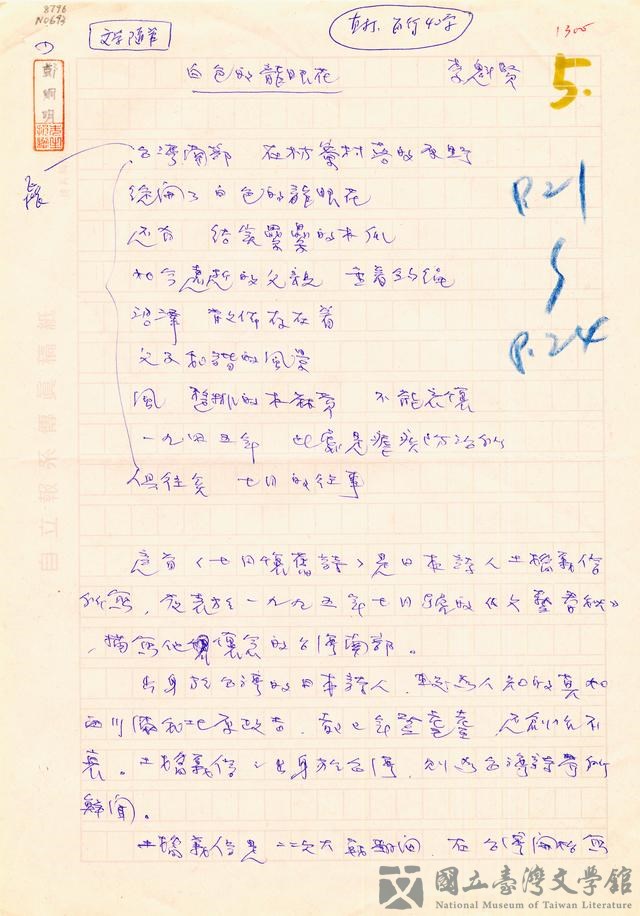 8796
N0693
文学随筆
直打、每行40字
1300
鄭烱明
白色的龍眼花
李魁賢
5.
台灣南部 在枋寮村落的原野
綻開了白色的龍眼花
还有 结实纍纍的木瓜
如今 的父親 垂着釣绳
沼澤 散佈存在着
父子和諧的風景
風 整排的木麻黄 不能忘懷
一九四五年 此處是瘧疾防治所
俱往矣 七月的往事
P.21
P.24
這首〈七月懷舊詩〉是日本詩人土橋義信
所寫,發表於一九九五年七月號的《文藝春秋》
,描寫他懷念的台灣南部。
出身於台灣的日本詩人,較為人知的莫如
西川滿和北原政吉,都已年登耄耋,
衰。土橋義信出身於台灣,則為台灣詩學所
鮮聞。
土橋義信是二次大戰期间,在台灣開始寫
自立報系傳員稿紙
國立臺灣文學館
National Museum of Taiwan Literature